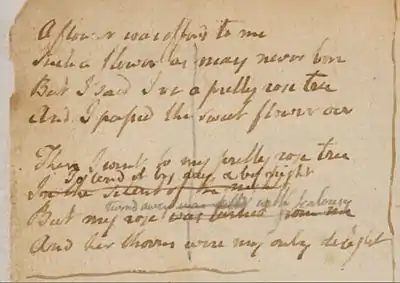 A flower was offerd to me
Such a flower as may never bore
But I said I've a pretty rose tree
And I passed the sweet flower oer
Then I went to my pretty rose tree
To tend it by day & by night
In the silent of the night
But my rose was turned from me
turnd away with jealousy
And her thorns were my only delight